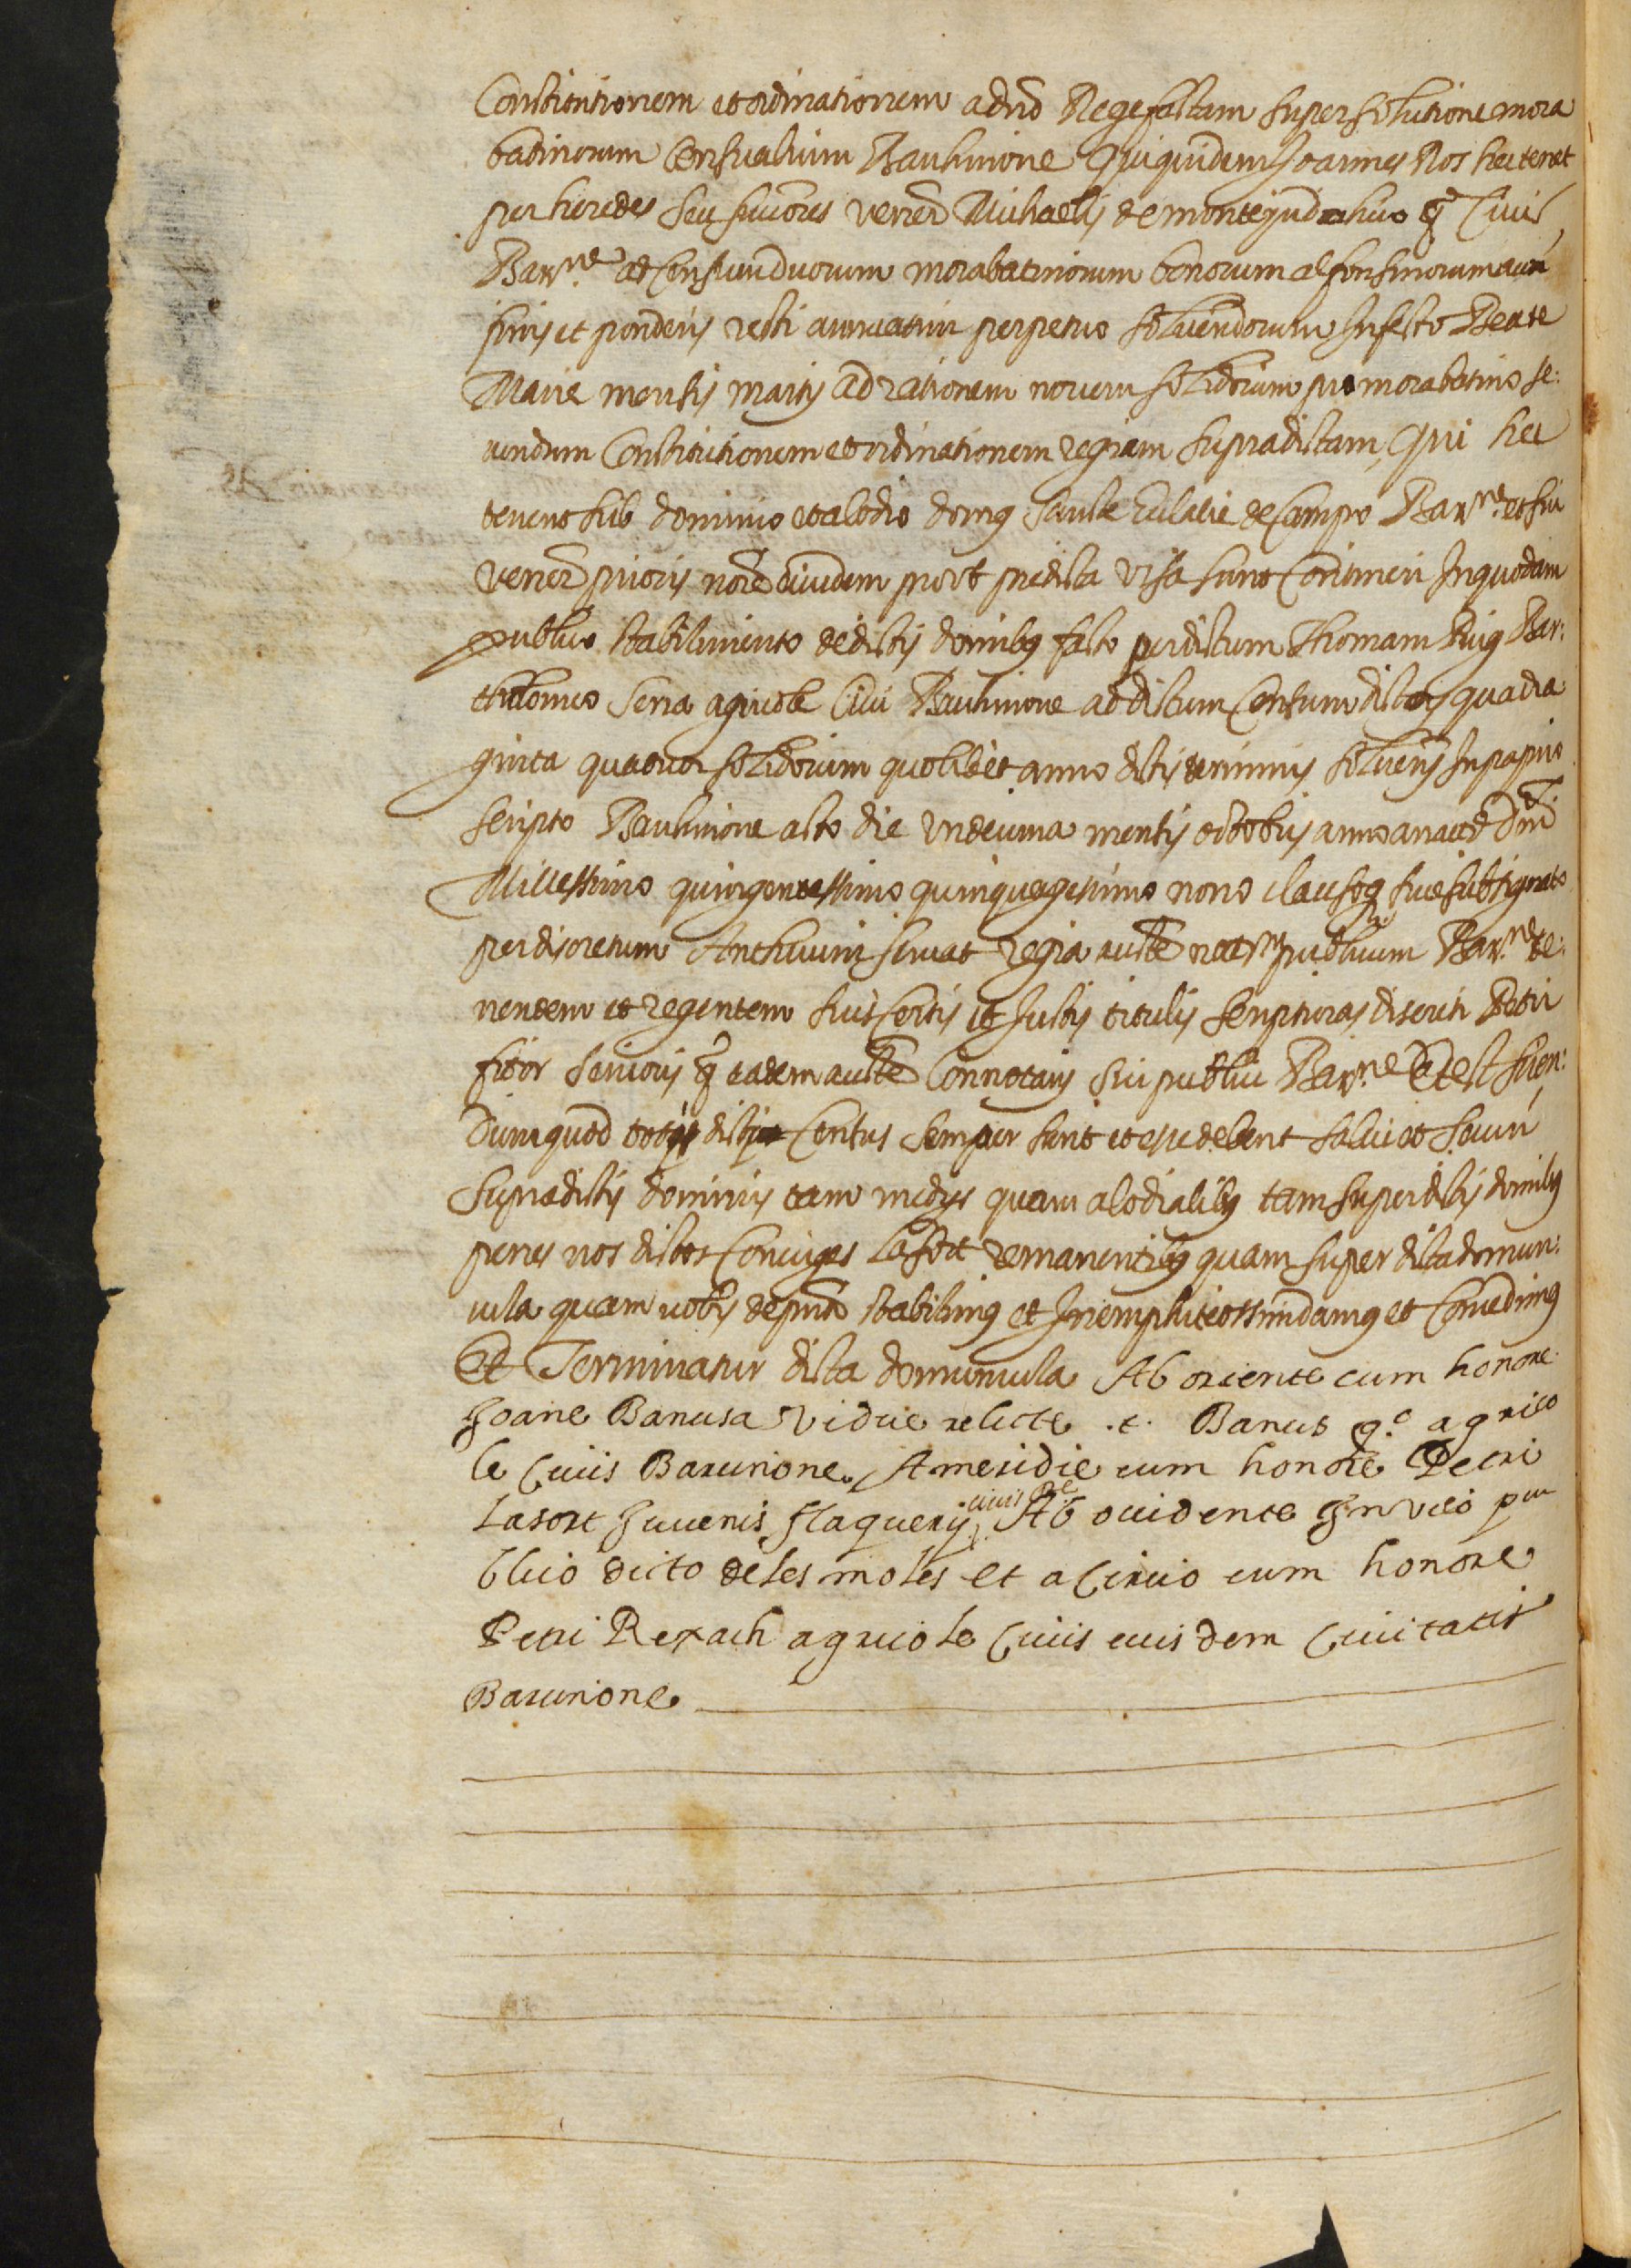 Constitutionem et ordinationem a dño Rege factam super solutione mora
batinorum Censualium Barchinone Qui quidem Joannes Ros hec tenet
per heredes seu succores venerᵐ Michaelis de montejudahico q̊ Civis
Barⁿᵉ. ad Censum duorum morabatinorum bonorum alfonsinorum auri
finis et ponderis recti annuatim perpetuo solvendorum In festo Beate
Marie mensis martij ad rationem novem solidorum pro morabatino se:
cundum Constitutionem et ordinationem regiam supradictam, Qui hec
tenent sub dominio et alodio domꝰ Sancte Eulalie de Campo Barⁿᵉ. et sui
vener prioris nõie eiusdem prout predicta visa sunt Contineri In quodam
publico stabilimento de dictis domibꝰ facto per dictum Thomam Puig Bar:
tholomeo Serra agricole Civi Barchinone ad dictum Censum dictorū quadra
ginta quatuor solidorum quolibet anno dictis terminis solvens In papiro
scripto Barchinone acto die undecima mensis octobris anno a natte Dñi
Millessimo quingentessimo quinquagesimo nono clausoq̨ sive subsignato
per discretum Anthicum Servat regia aucte notm̄ publicum Barⁿᵉ. te:
nentem et regentem suis Certis et Justis titulis scripturas discreti Petri
fitor senioris q̊ eadem aucte Connotarij sui publici Barⁿᵉ. Et est scien:
dum quod dicti Census semper sunt et esse debent salvi et securi
Supradictis dominis tam medijs quam alodialibꝰ tam super dictis domibꝰ
penes nos dictos Coniuges Lafort remanentibꝰ quam super dicta domun:
cula quam vobis de pñti stabilimꝰ et In emphiteossim damꝰ et Concedimꝰ
Et Terminatur dicta domuncula Ab oriente cum honore
Joane Banusa vidue relicte .t. Banus q.º agrico
le Civis Barcinone. A meridie cum honore Petri
Lasort Juvenis flaquerij civis Bⁿᵉ Ab occidente In vico pu
blico dicto de les moles et a Circio cum honore
Petri Rexach agricole Civis eiusdem Civitatis
Barcinone